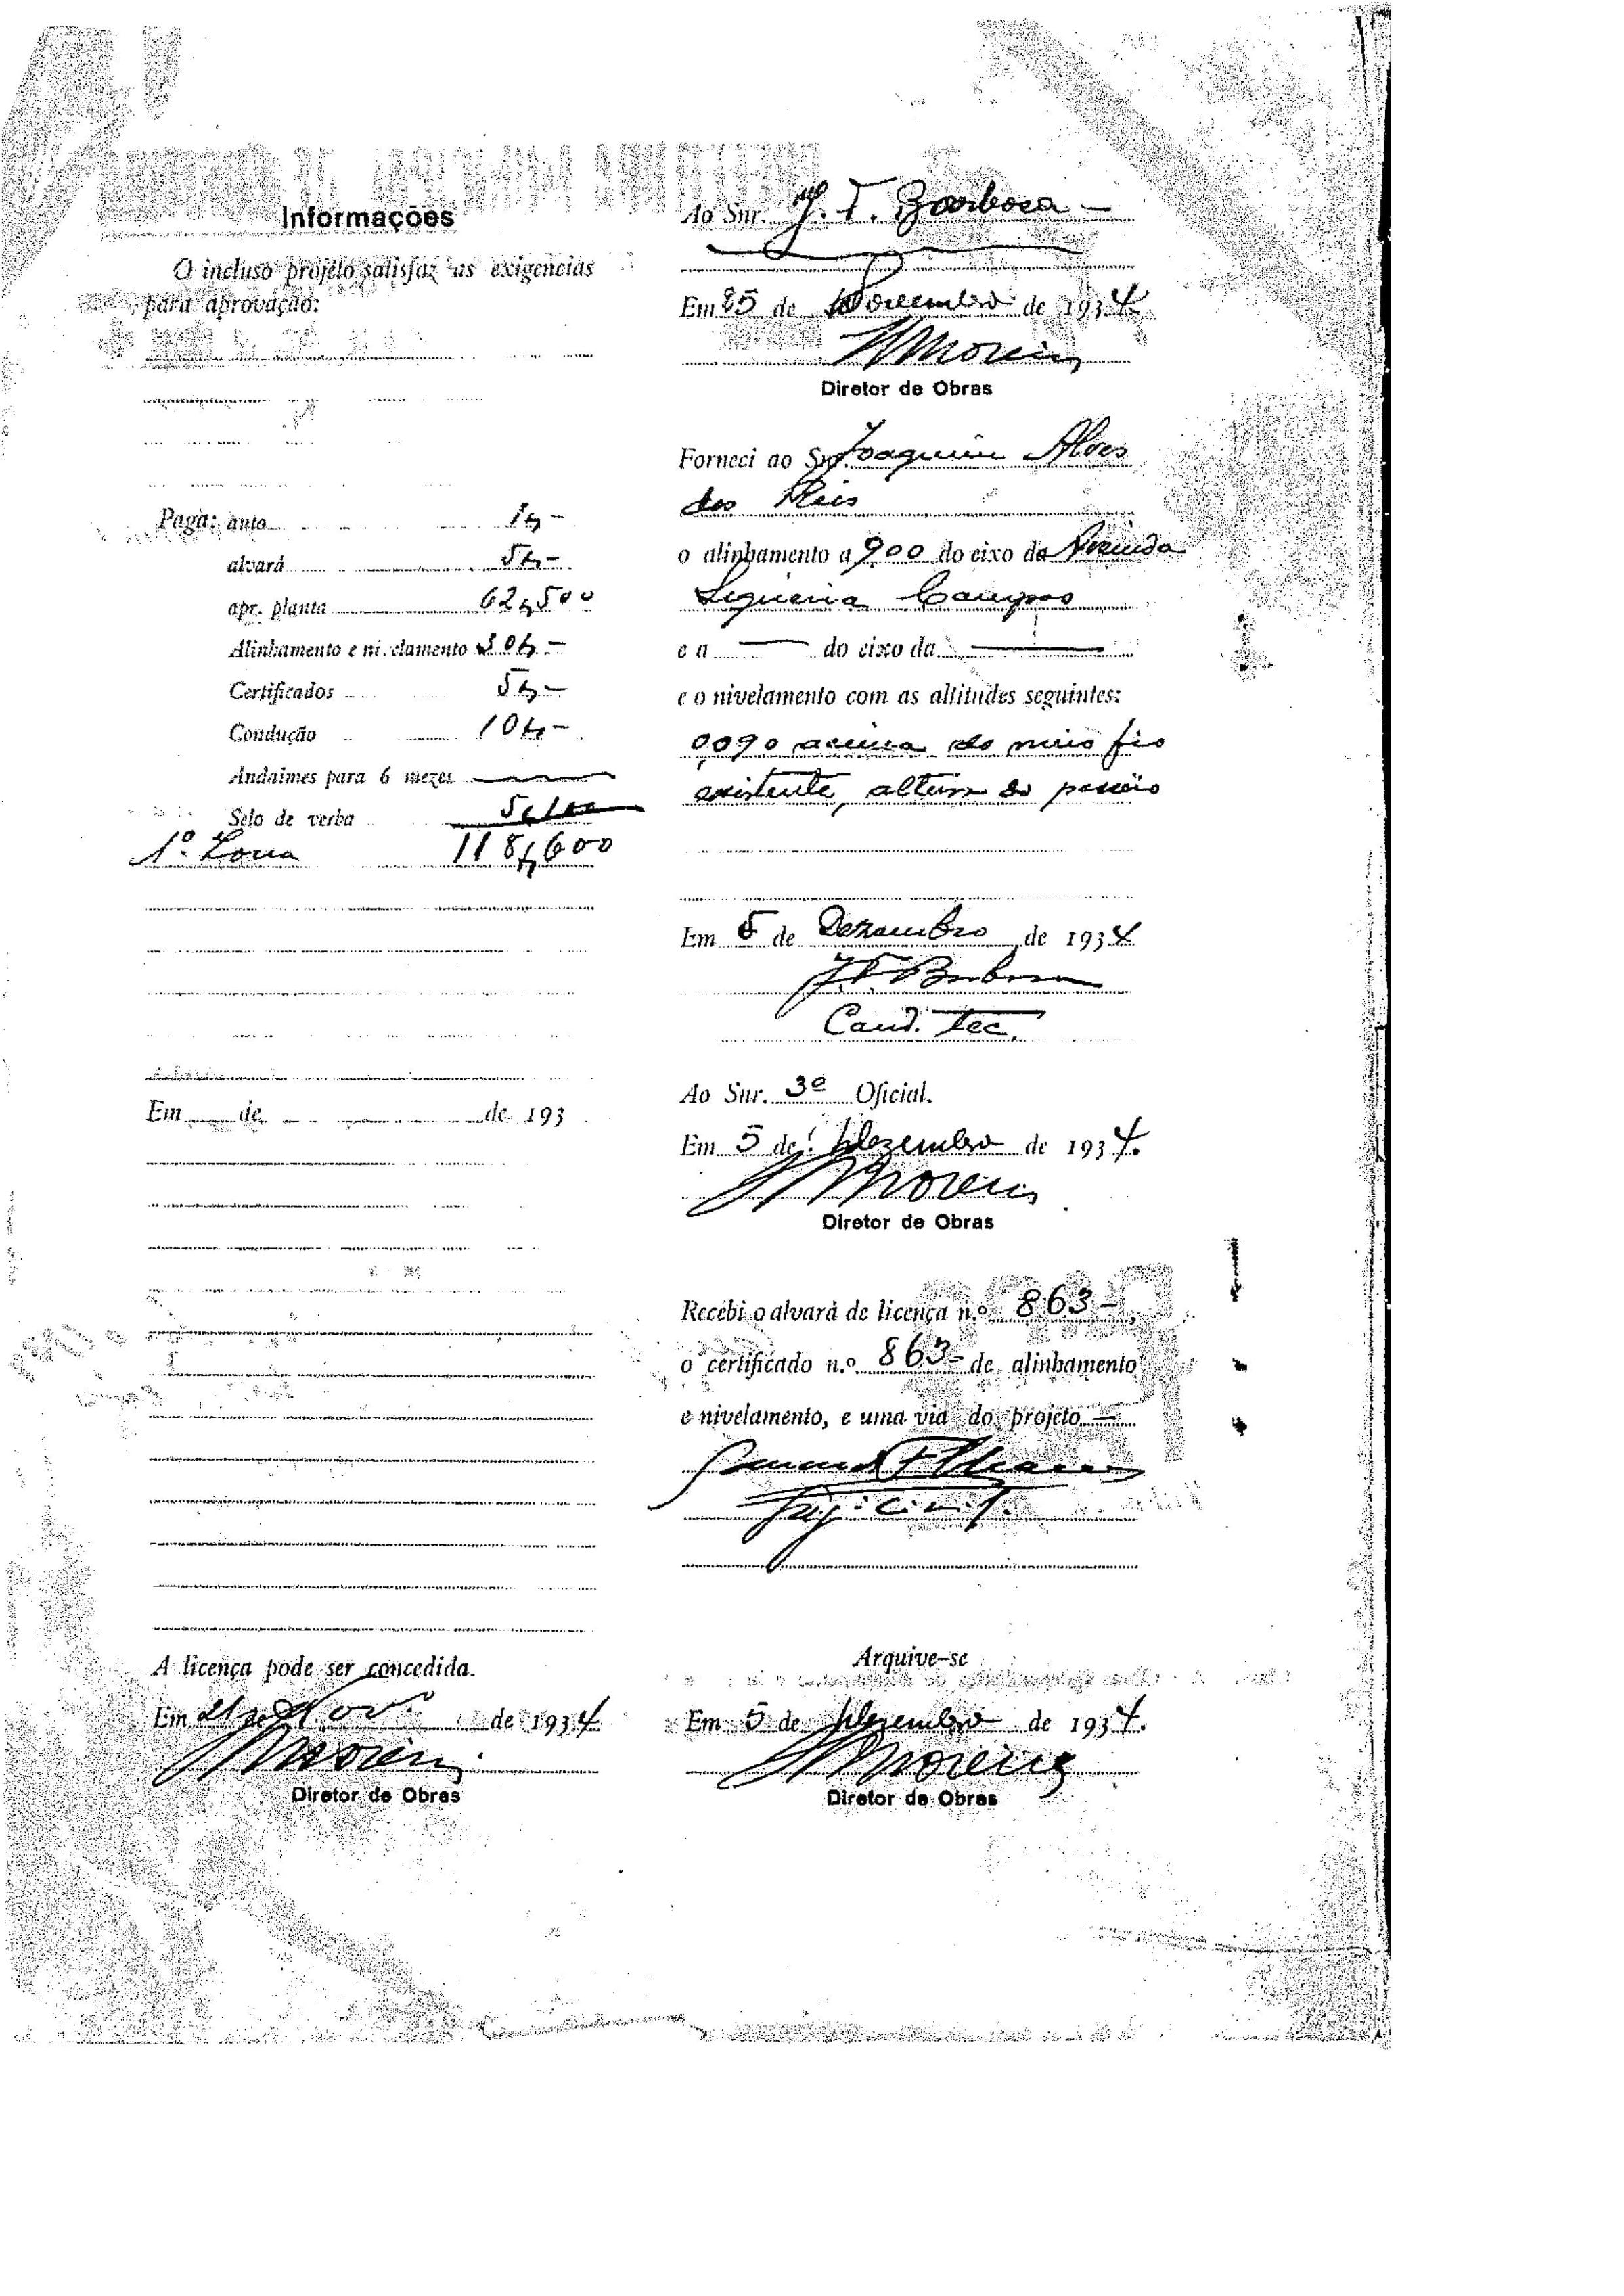 Informações
O incluso projéto satisfaz as exigencias
para aprovação:
Paga: auto 1$-
alvará 5$-
apr. planta 62$500
Alinhamento e nivelamento 30$-
Certificados 5$-
Condução 10$-
Andaimes para 6 mezes
Selo de verba 5$100
1ª. Zona 118$600
Em de de 193
A licença pode ser concedida.
Em de Nov. de 1934
Moreira
Diretor de Obras
Ao Snr. J. T. Barbosa -
Em 25 de Novembro de 1934
Moreira
Diretor de Obras
Forneci ao Snr. Joaquim Alves
dos Reis
o alinhamento a 9.00 do eixo da Avenida
Siqueira Campos
e a — do eixo da —
e o nivelamento com as altitudes seguintes:
0,090 acima do meio fio
existente, altura do passeio
Em 5 de Dezembro de 1934
J.T. Barbosa
Cond. Tec.
Ao Snr. 3º Oficial.
Em 5 de Dezembro de 1934.
Moreira
Diretor de Obras
Recebi o alvará de licença n.º 863-
o certificado n.º 863- de alinhamento
e nivelamento, e uma via do projeto —
Eng. Civil.
Arquive-se
Em 5 de Dezembro de 1934.
Moreira
Diretor de Obras